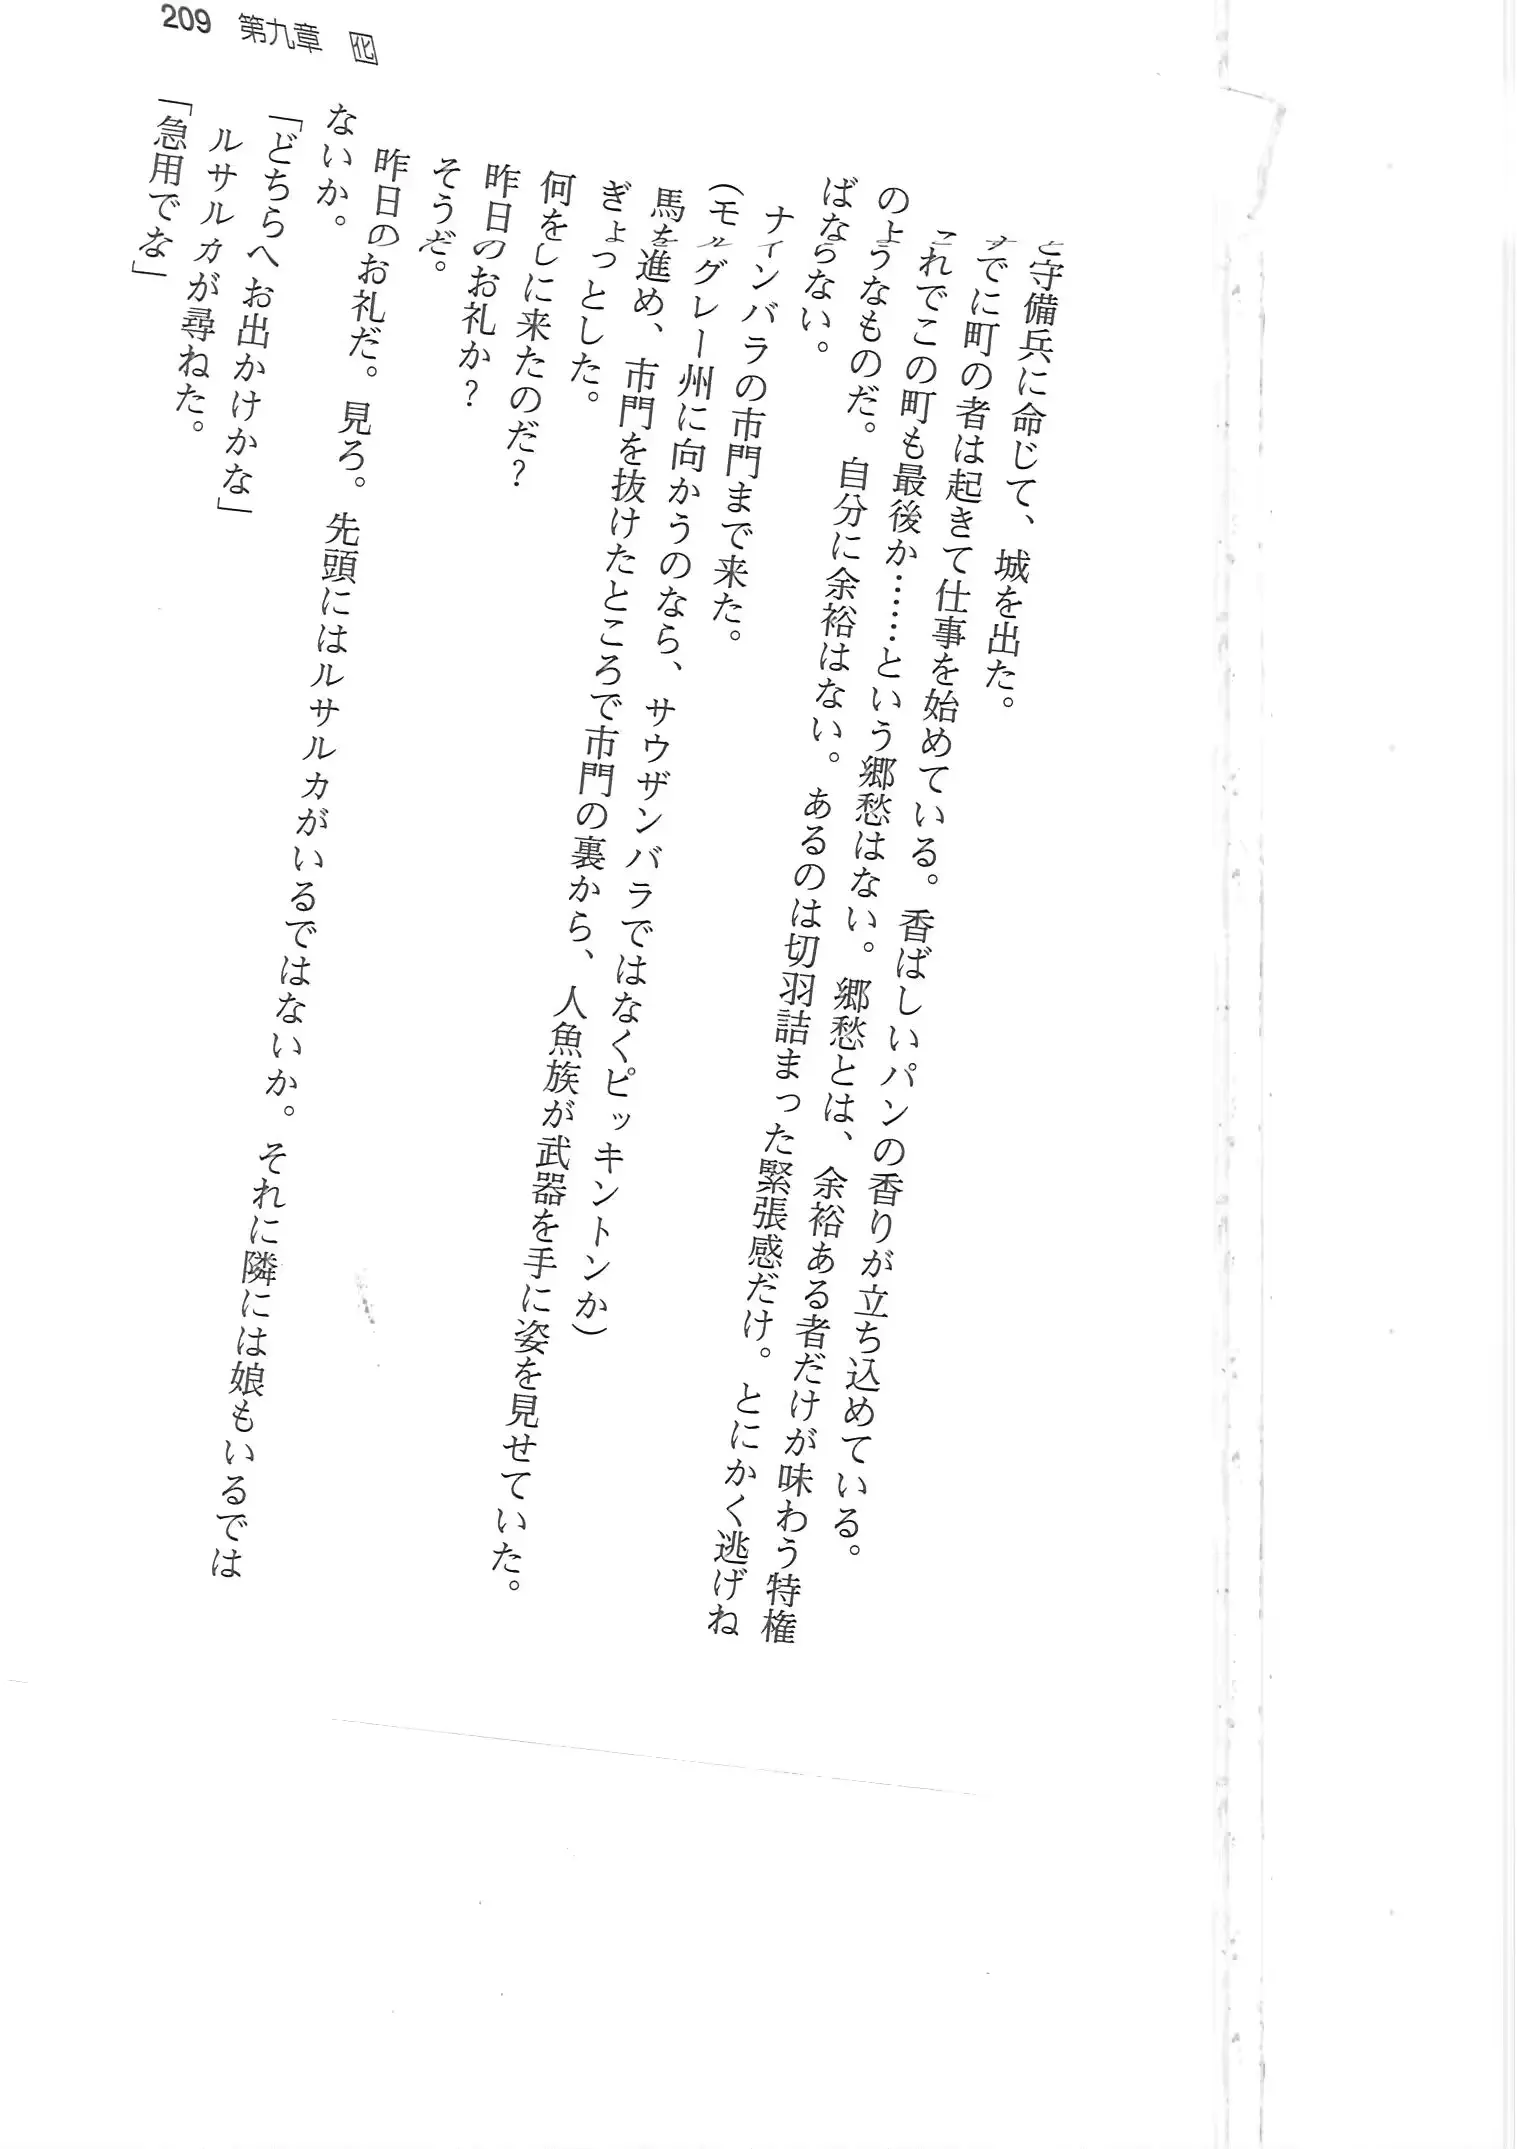 209 第九章 囮
と守備兵に命じて、城を出た。
すでに町の者は起きて仕事を始めている。香ばしいパンの香りが立ち込めている。
これでこの町も最後か……という郷愁はない。郷愁とは、余裕ある者だけが味わう特権
のようなものだ。自分に余裕はない。あるのは切羽詰まった緊張感だけ。とにかく逃げね
ばならない。
ナインバラの市門まで来た。
(モルグレー州に向かうのなら、サウザンバラではなくピッキントンか)
馬を進め、市門を抜けたところで市門の裏から、人魚族が武器を手に姿を見せていた。
ぎょっとした。
何をしに来たのだ?
昨日のお礼か?
そうだ。
昨日のお礼だ。見ろ。先頭にはルサルカがいるではないか。それに隣には娘もいるでは
ないか。
「どちらへお出かけかな」
ルサルカが尋ねた。
「急用でな」